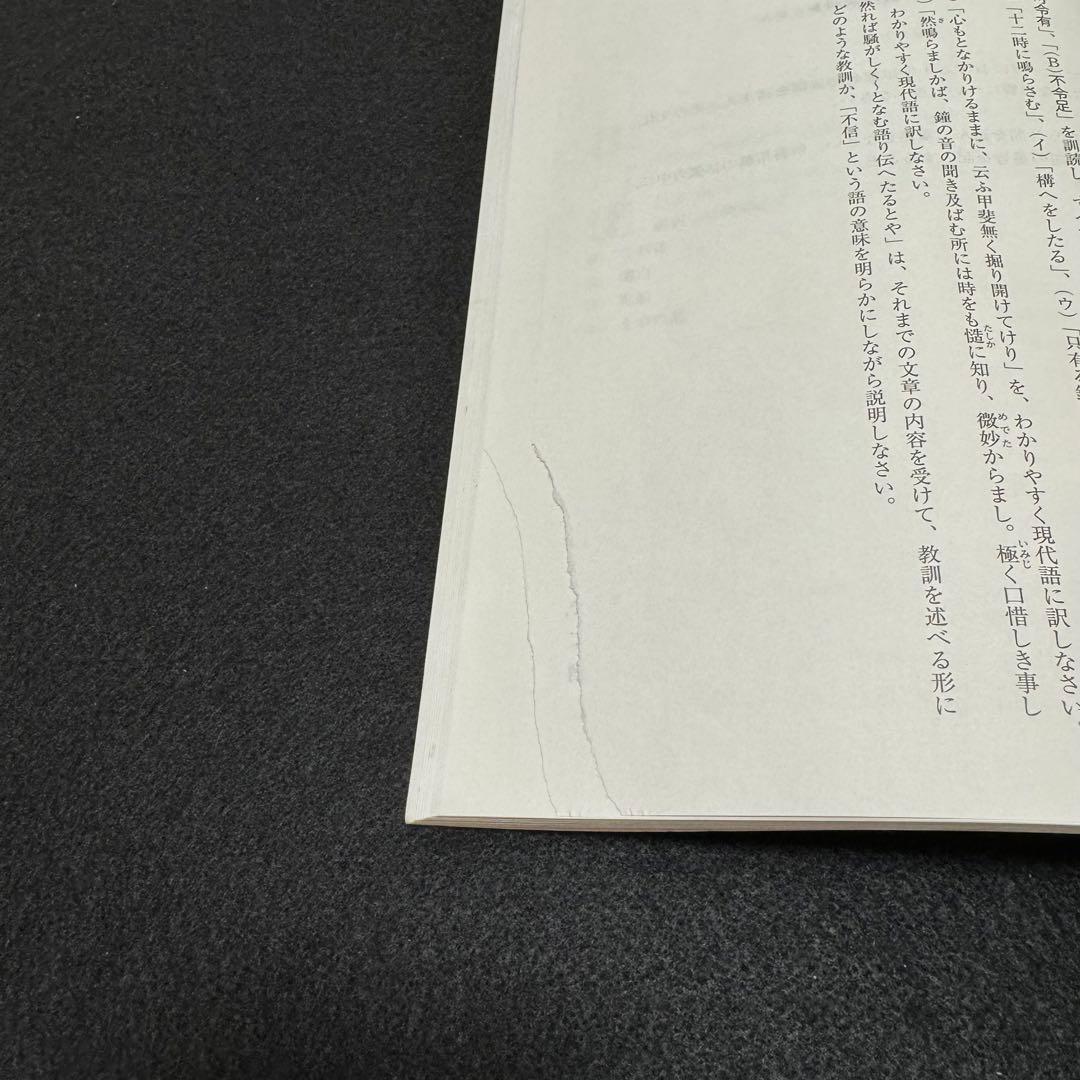 不令有」、「(B)不令足」を訓読し
「十二時に鳴らさむ」、(イ)「構へをしたる」、(ウ)「只有
「心もとなかりけるままに、云ふ甲斐無く掘り開けてけり」を、わかりやすく現代語に訳しなさい。
「然鳴らましかば、鐘の音の聞き及ばむ所には時をも慥に知り、微妙からまし。極く口惜しき事し
わかりやすく現代語に訳しなさい。
然れば騒がしく〜となむ語り伝へたるとや」は、それまでの文章の内容を受けて、教訓を述べる形に
どのような教訓か、「不信」という語の意味を明らかにしながら説明しなさい。